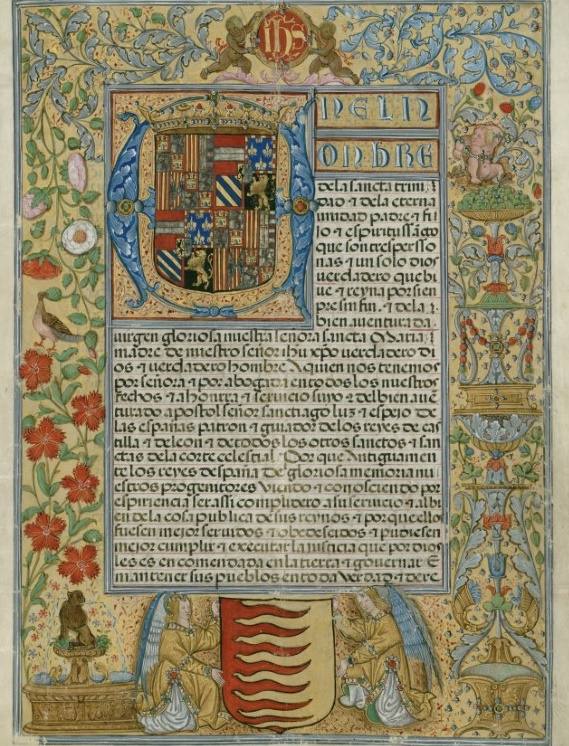 ihs
N EL N
OMBRE
dela sancta trini
dad ⁊ dela eterna
unidad padre ⁊ fi
jo ⁊ espiritu s̄ācto
que son tres perso
nas ⁊ un solo dios
verdadero que bi
ue ⁊ reyna por sien
pre sin fin. ⁊ dela
bien auenturada.
uirgen gloriosa nuestra señora sancta Maria
madre de nuestro señor ihu xpo uerdadero di
os ⁊ uerdadero hombre. A quien nos tenemos
por señora ⁊ por abogada en todos los nuestros
fechos ⁊ a honrra ⁊ seruicio suyo ⁊ del bien auē
turado apostol señor sanctiago luz ⁊ espejo de
las españas patron ⁊ guiador delos reyes de cas
tilla ⁊ de leon ⁊ de todos los otros sanctos ⁊ san
ctas dela corte celestial. Por que Antiguamen
te los reyes despaña de gloriosa memoria nu
estros progenitores Viendo ⁊ conosciendo por
espiriencia ser assi complidero a su seruicio ⁊ al bi
en dela cosa publica de sus reynos ⁊ por que ello
fuesen mejor seruidos ⁊ obedescidos ⁊ pudiesen
mejor cumplir ⁊ executar la iusticia que por dios
les es encomendada en la tierra ⁊ gouernar E
mantener sus pueblos en toda Verdad ⁊ dere